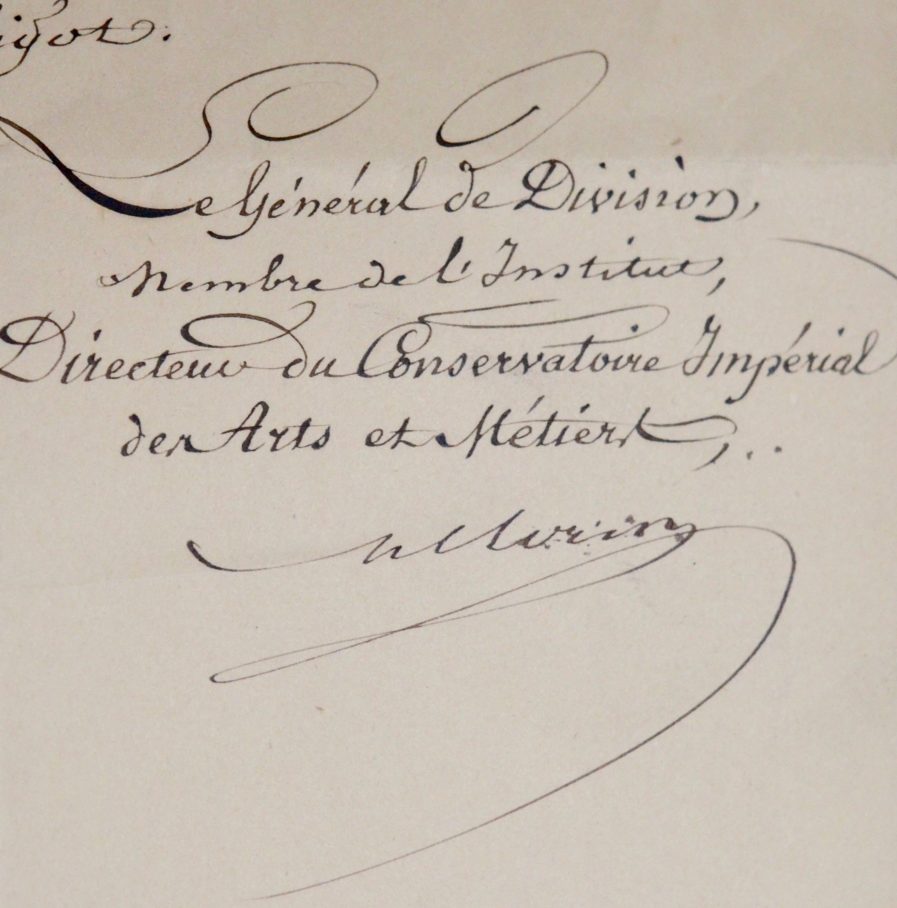 Le Général de Division,
Membre de l'Institut,
Directeur du Conservatoire Impérial
des Arts et Métiers,
Morin